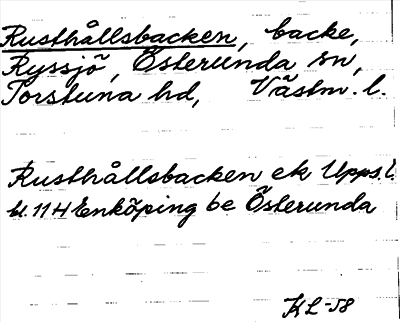 Rusthållsbacken, backe,
Ryssjö, Österunda sn,
Torstuna hd, Västm. l.
Rusthållsbacken ek Upps. l.
bl. 11 H Enköping be Österunda
KL -58